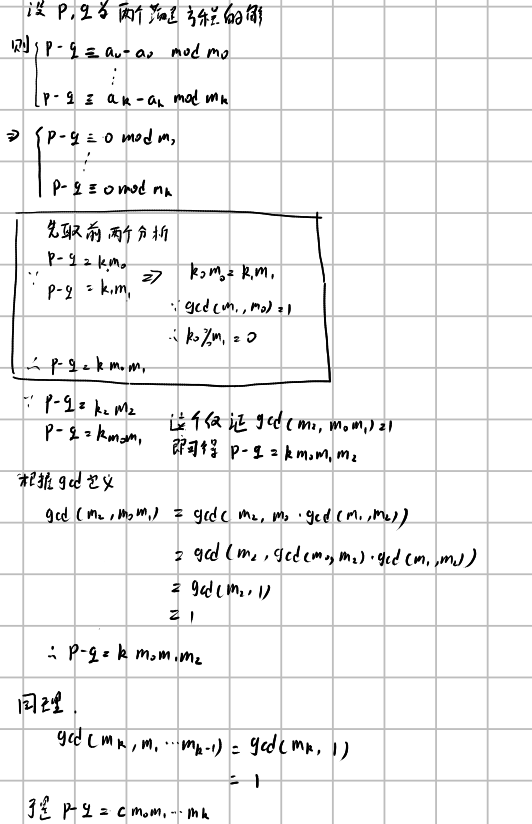 设 p,q 为两个满足方程的解
则 { p-q ≡ a₀-a₀ mod m₀
⋮
p-q ≡ aₖ-aₖ mod mₖ
⇒ { p-q ≡ 0 mod m,
⋮
p-q ≡ 0 mod mₖ
先取前两个分析
∵ p-q = k₀m₀ ⇒ k₀m₀ = k₁m₁
p-q = k₁m₁ ∵ gcd(m₁,m₀)=1
∴ k₀%m₁ = 0
∴ p-q = k m₀m₁
∵ p-q = k₂m₂ 这个仅证 gcd(m₂, m₀m₁)=1
p-q = km₀m₁ 即可得 p-q = k m₀m₁m₂
根据gcd定义
gcd(m₂,m₀m₁) = gcd(m₂, m₀·gcd(m₁,m₂))
= gcd(m₂, gcd(m₀,m₂)·gcd(m₁,m₂))
= gcd(m₂,1)
= 1
∴ p-q = k m₀m₁m₂
同理.
gcd(mₖ,m₁⋯mₖ₋₁) = gcd(mₖ,1)
= 1
于是 p-q = c m₀m₁⋯mₖ